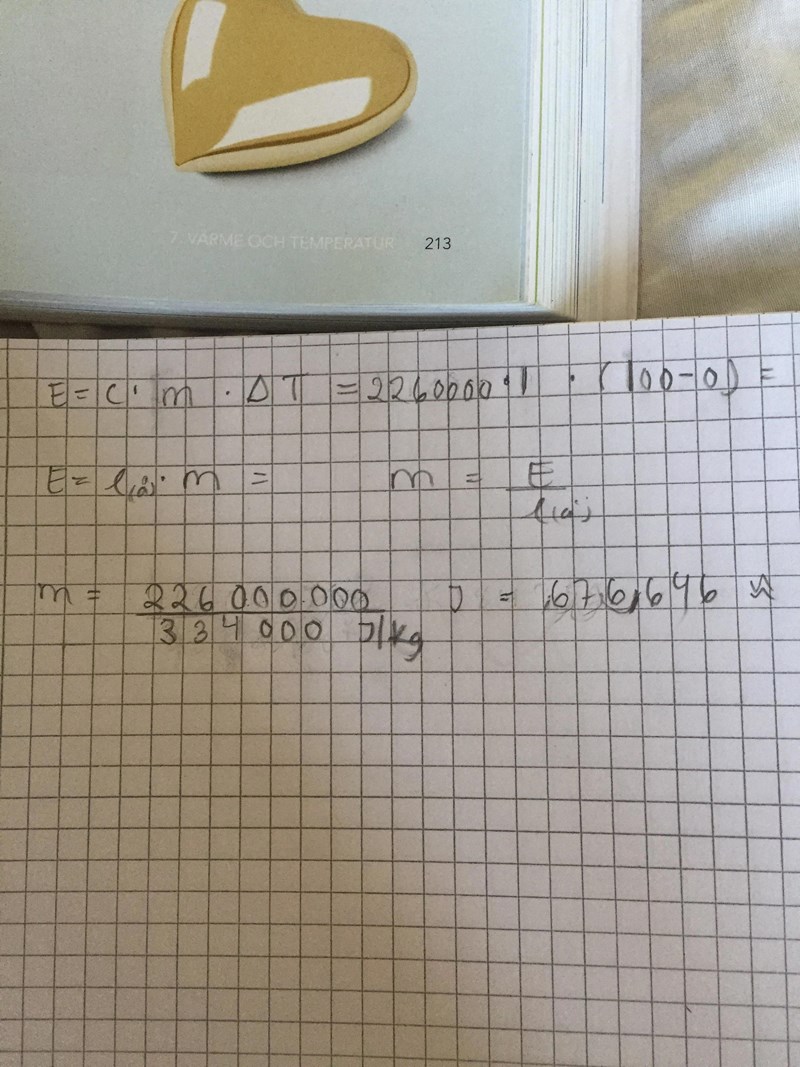 7. VÄRME OCH TEMPERATUR 213
E = C · m · ΔT = 2260000 · 1 · (100-0) =
E = l(a) · m = m = E / l(a)
m = 226 000 000 J / 334 000 J/kg = 676,646 ≈